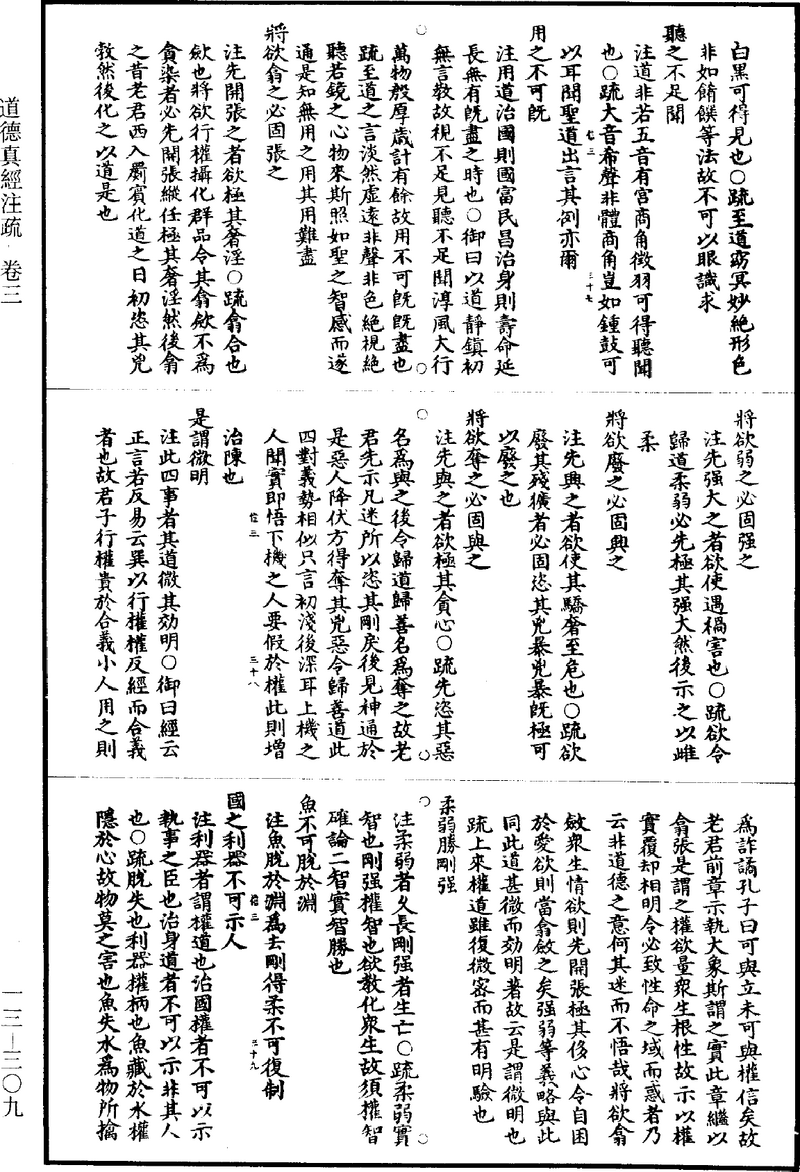 道德真經注疏 卷三
一三—三〇九
白黑可得見也○疏至道窈冥妙絶形色
非如餚饌等法故不可以眼識求
聽之不足聞
注道非若五音有宮商角徵羽可得聽聞
也○疏大音希聲非體商角豈如鍾鼓可
以耳聞聖道出言其例亦爾
用之不可旣
注用道治國則國富民昌治身則壽命延
長無有旣盡之時也○御曰以道靜鎮初
無言敎故視不足見聽不足聞淳風大行
萬物殷厚歲計有餘故用不可旣旣盡也
疏至道之言淡然虛遠非聲非色絶視絶
聽若鏡之心物來斯照如聖之智感而遂
通是知無用之用其用難盡
將欲翕之必固張之
注先開張之者欲極其奢淫○疏翕合也
歛也將欲行權攝化群品令其翕歛不爲
貪染者必先開張縱任極其奢淫然後翕
之昔老君西入罽賓化道之日初恣其兇
敎然後化之以道是也
將欲弱之必固强之
注先强大之者欲使遇禍害也○疏欲令
歸道柔弱必先極其强大然後示之以雌
柔
將欲廢之必固興之
注先興之者欲使其驕奢至危也○疏欲
廢其殘獷者必固恣其兇暴兇暴旣極可
以廢之也
將欲奪之必固與之
注先與之者欲極其貪心○疏先恣其惡
名爲與之後令歸道歸善名爲奪之故老
君先示凡迷所以恣其剛戾後見神通於
是惡人降伏方得奪其兇惡令歸善道此
四對義勢相似只言初淺後深耳上機之
人聞實即悟下機之人要假於權此則增
治陳也
是謂微明
注此四事者其道微其効明○御曰經云
正言若反易云巽以行權權反經而合義
者也故君子行權貴於合義小人用之則
爲詐譎孔子曰可與立未可與權信矣故
老君前章示執大象斯謂之實此章繼以
翕張是謂之權欲量衆生根性故示以權
實覆却相明令必致性命之域而惑者乃
云非道德之意何其迷而不悟哉將欲翕
歛衆生情欲則先開張極其侈心令自困
於愛欲則當翕歛之矣强弱等義略與此
同此道甚微而効明著故云是謂微明也
疏上來權道雖復微密而甚有明驗也
柔弱勝剛强
注柔弱者久長剛强者生亡○疏柔弱實
智也剛强權智也欲敎化衆生故須權智
確論二智實智勝也
魚不可脫於淵
注魚脫於淵爲去剛得柔不可復制
國之利器不可示人
注利器者謂權道也治國權者不可以示
執事之臣也治身道者不可以示非其人
也○疏脫失也利器權柄也魚藏於水權
隱於心故物莫之害也魚失水爲物所擒